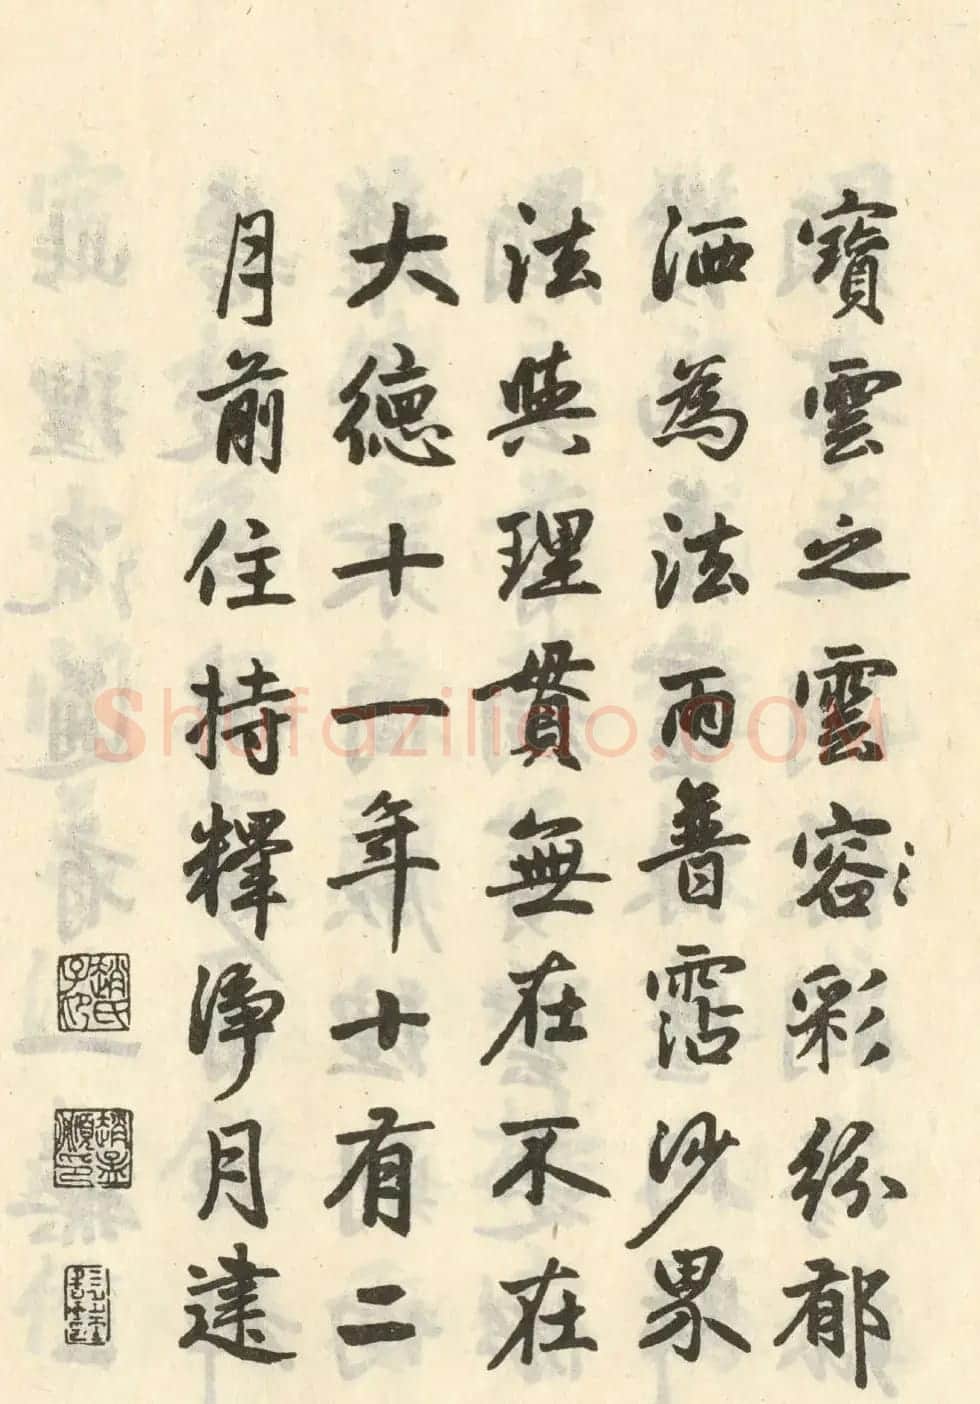 寶雲之雲容〻彩紛郁
洒為法雨普霑沙界
法與理貫無在不在
大德十一年十有二
月前住持釋淨月建
趙氏子印
趙孟頫印
Shufaziliao.COM